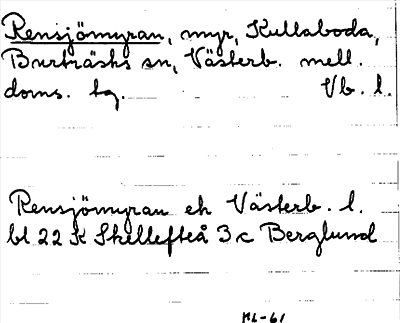 Rensjömyran, myr, Kullaboda,
Burträsks sn, Västerb. mell.
doms. hg. Vb. l.
Rensjömyran ek Västerb. l.
bl 22 K Skellefteå 3 c Berglund